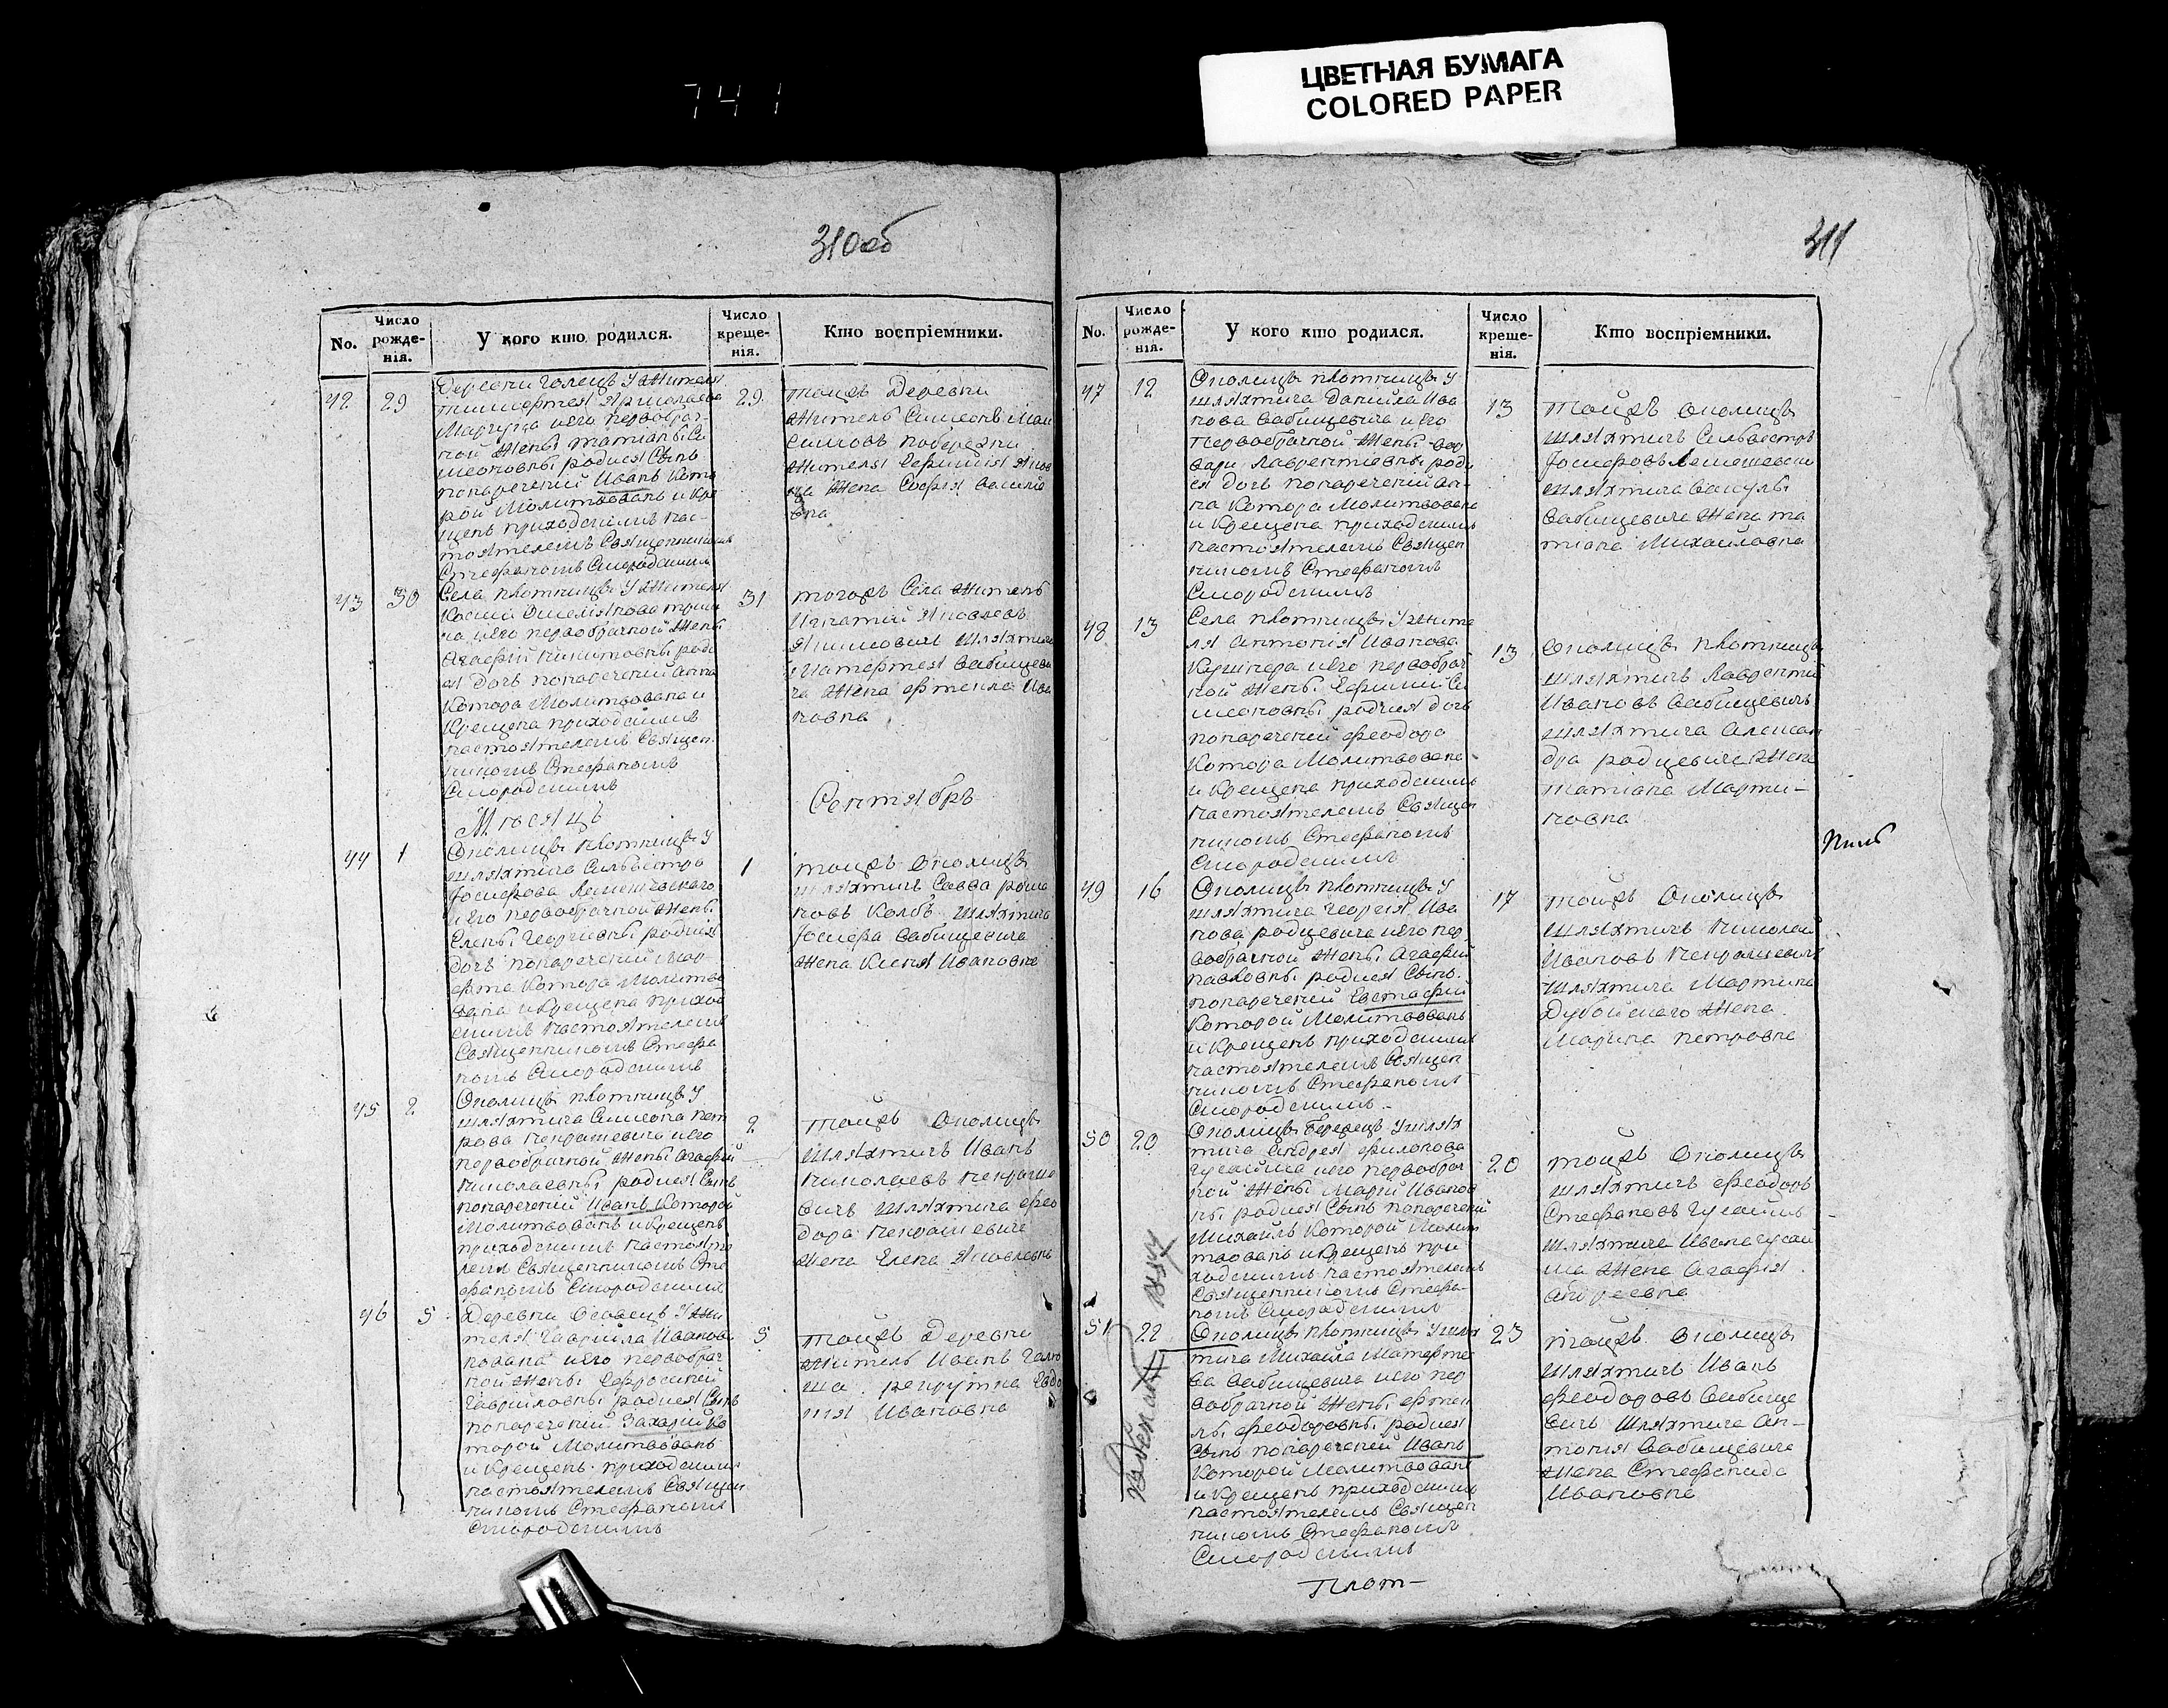 741
ЦВЕТНАЯ БУМАГА
COLORED PAPER
310об
No.
Число рожде-нія.
У кого кто родился.
Число креще-нія.
Кто воспріемники.
42 29
ДеревниГолецъ У жителя
его первобрач-
ной жены Татіаны Си
меоновны родися сынъ
нареченній Иванъ кото
рой молитвованъ и кре
щенъ приходскимъ нас-
тоятелемъ Священникомъ
Стефаномъ Смородскимъ
29
тоижъ Деревни
житель Симеонъ Мак
симовъ
жителя Ефимія
жена Софія Василіе
вна
43 30
Села Плотницы У жителя
Космы
на и его первобрачной жены
Агафіи Никитовны роди
ся дочь нареченній Анна
котора молитвована и
крещена приходскимъ
настоятелемъ Священ
никомъ Стефаномъ
Смородскимъ
31
тогожъ Села житель
Игнатій Яковлевъ
шляхтича
Матфтея Бабицеви
ча жена Фтекла Ива
новна
Мѣсяцъ
Сентябрь
44 1
Околицы Плотницы У
шляхтича Сильвестра
Іосифова Лемешевскаго
и его первобрачной жены
Елены Георгіевны родися
дочь нареченній Мар-
фта котора молитво
вана и крещена приход
скимъ настоятелемъ
Священникомъ Стефа
номъ Смородскимъ
1
тоижъ Околицы
шляхтичъ Савва Рома
новъ Колбъ шляхтича
Іосифа Бабицевича
жена Ксенія Ивановна
45 2
Околицы Плотницы У
шляхтича Симеона Пет
рова Ненрашевича и его
первобрачной жены Агафіи
Николаевны родися сынъ
нареченній Иванъ которой
молитвованъ и крещенъ
приходскимъ настояте
лемъ Священникомъ Сте
фаномъ Смородскимъ
2
тоижъ Околицы
шляхтичъ Иванъ
Николаевъ Ненраше
вичъ шляхтича Фео
дора Ненрашевича
жена Елена Яковлевна
46 5
Деревни Осовецъ У жи
теля Гавриила Иванова
и его первобрач
ной жены Ефросиніи
Гавриловны родися сынъ
нареченній Захарій ко
торой молитвованъ
и крещенъ приходскимъ
настоятелемъ Священ
никомъ Стефаномъ
Смородскимъ
5
тоижъ Деревни
житель Иванъ
рекрутка Евдо
кія Ивановна
311
No.
Число рожде-нія.
У кого кто родился.
Число креще-нія.
Кто воспріемники.
47 12
Околицы Плотницы У
шляхтича Даниила Ива
нова Бабицевича и его
первобрачной жены Вар
вари Лаврентіевны роди
ся дочь нареченній Ан-
на котора молитвована
и крещена приходскимъ
настоятелемъ Священ
никомъ Стефаномъ
Смородскимъ
13
тоижъ Околицы
шляхтичъ Сильвестръ
Іосифовъ Лемешевски
шляхтича
Бабицевича жена Та
тіана Михайловна
48 13
Села Плотницы У жите
ля Антонія Иванова
Кушнера и его первобрач
ной жены Ефиміи Си
меоновны родися дочь
нареченній Феодора
котора молитвована
и крещена приходскимъ
настоятелемъ Священ
никомъ Стефаномъ
Смородскимъ
13
Околицы Плотницы
шляхтичъ Лаврентій
Ивановъ Бабицевичъ
шляхтича Алексан
дра Родцевича жена
Татіана Марти-
новна
49 16
Околицы Плотницы У
шляхтича Георгія Ива
нова Родцевича и его пер
вобрачной жены Агафіи
Павловны родися сынъ
нареченній Евстафій
которой молитвованъ
и крещенъ приходскимъ
настоятелемъ Священ
никомъ Стефаномъ
Смородскимъ
17
тоижъ Околицы
шляхтичъ Николай
Ивановъ Ненрашевичъ
шляхтича Мартина
Дубойского жена
Марина Петровна
50 20
Околицы Бережцъ У шлях
тича Андрея Филонова
Гусаима и его первобрач
ной жены Маріи Иванов
ны родися сынъ нареченній
Михаилъ которой молит
твованъ и крещенъ при
ходскимъ настоятелемъ
Священникомъ Стефа-
номъ Смородскимъ
20
тоижъ Околицы
шляхтичъ Феодоръ
Стефановъ Гусаимъ
шляхтича Ивана Гусаи
ма жена Агафія
Андреевна
51 22
Околицы Плотницы У шлях
тича Михаила Матфте
ва Бабицевича и его пер
вобрачной жены Фтек
лы Феодоровны родися
сынъ нареченній Иванъ
которой молитвованъ
и крещенъ приходскимъ
настоятелемъ Священ
никомъ Стефаномъ
Смородскимъ
23
тоижъ Околицы
шляхтичъ Иванъ
Феодоровъ Бабице
вичъ шляхтича Ан-
тонія Бабицевича
жена Стефанида
Ивановна
Плот-